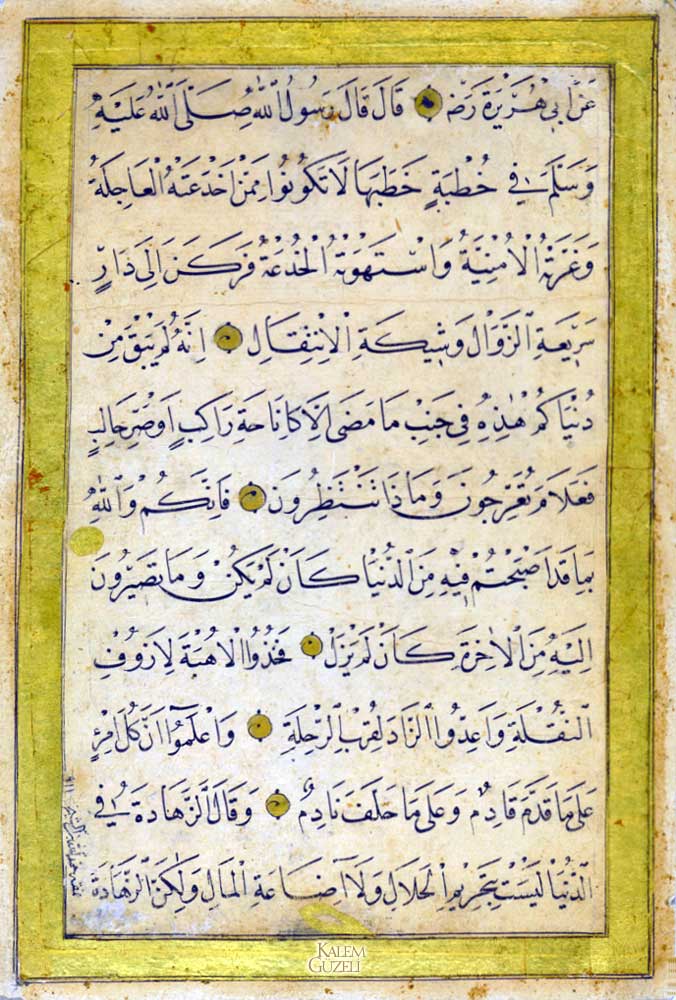 عَنْ اَبِي هُرَيْرَةَ رَضِ قَالَ قَالَ رَسُولُ اللّٰهِ صَلَّى اللّٰهُ عَلَيْهِ
وَسَلَّمَ فِي خُطْبَةٍ خَطَبَهَا لَا تَكُونُوا مِمَّنْ اَخْدَعَتْهُ الْعَاجِلَةُ
وَغَرَّتْهُ الْاُمْنِيَّةُ وَاسْتَهْوَتْهُ الْخُدْعَةُ فَرَكَنَ اِلَى دَارٍ
سَرِيعَةِ الزَّوَالِ وَشِيكَةِ الْاِنْتِقَالِ اِنَّهُ لَمْ يَبْقَ مِنْ
دُنْيَاكُمْ هٰذِهِ فِي جَنْبِ مَا مَضَى اِلَّا كَاِنَاحَةِ رَاكِبٍ اَوْ صَرِّ حَالِبٍ
فَعَلَامَ تُعَرِّجُونَ وَمَاذَا تَنْتَظِرُونَ فَاِنَّكُمْ وَاللّٰهِ
بِمَا قَدْ اَصْبَحْتُمْ فِيهِ مِنَ الدُّنْيَا كَاَنْ لَمْ يَكُنْ وَمَا تَصِيرُونَ
اِلَيْهِ مِنَ الْاٰخِرَةِ كَاَنْ لَمْ يَزَلْ فَخُذُوا الْاُهْبَةَ لِاَزُوفِ
النُّقْلَةِ وَاَعِدُّوا الزَّادَ لِقُرْبِ الرِّحْلَةِ وَاعْلَمُوا اَنَّ كُلَّ امْرِئٍ
عَلَى مَا قَدَّمَ قَادِمٌ وَعَلَى مَا خَلَّفَ نَادِمٌ وَقَالَ الزَّهَادَةُ فِي
الدُّنْيَا لَيْسَتْ بِتَحْرِيمِ الْحَلَالِ وَلَا اِضَاعَةِ الْمَالِ وَلٰكِنَّ الزَّهَادَةَ
KALEM
GÜZELİ